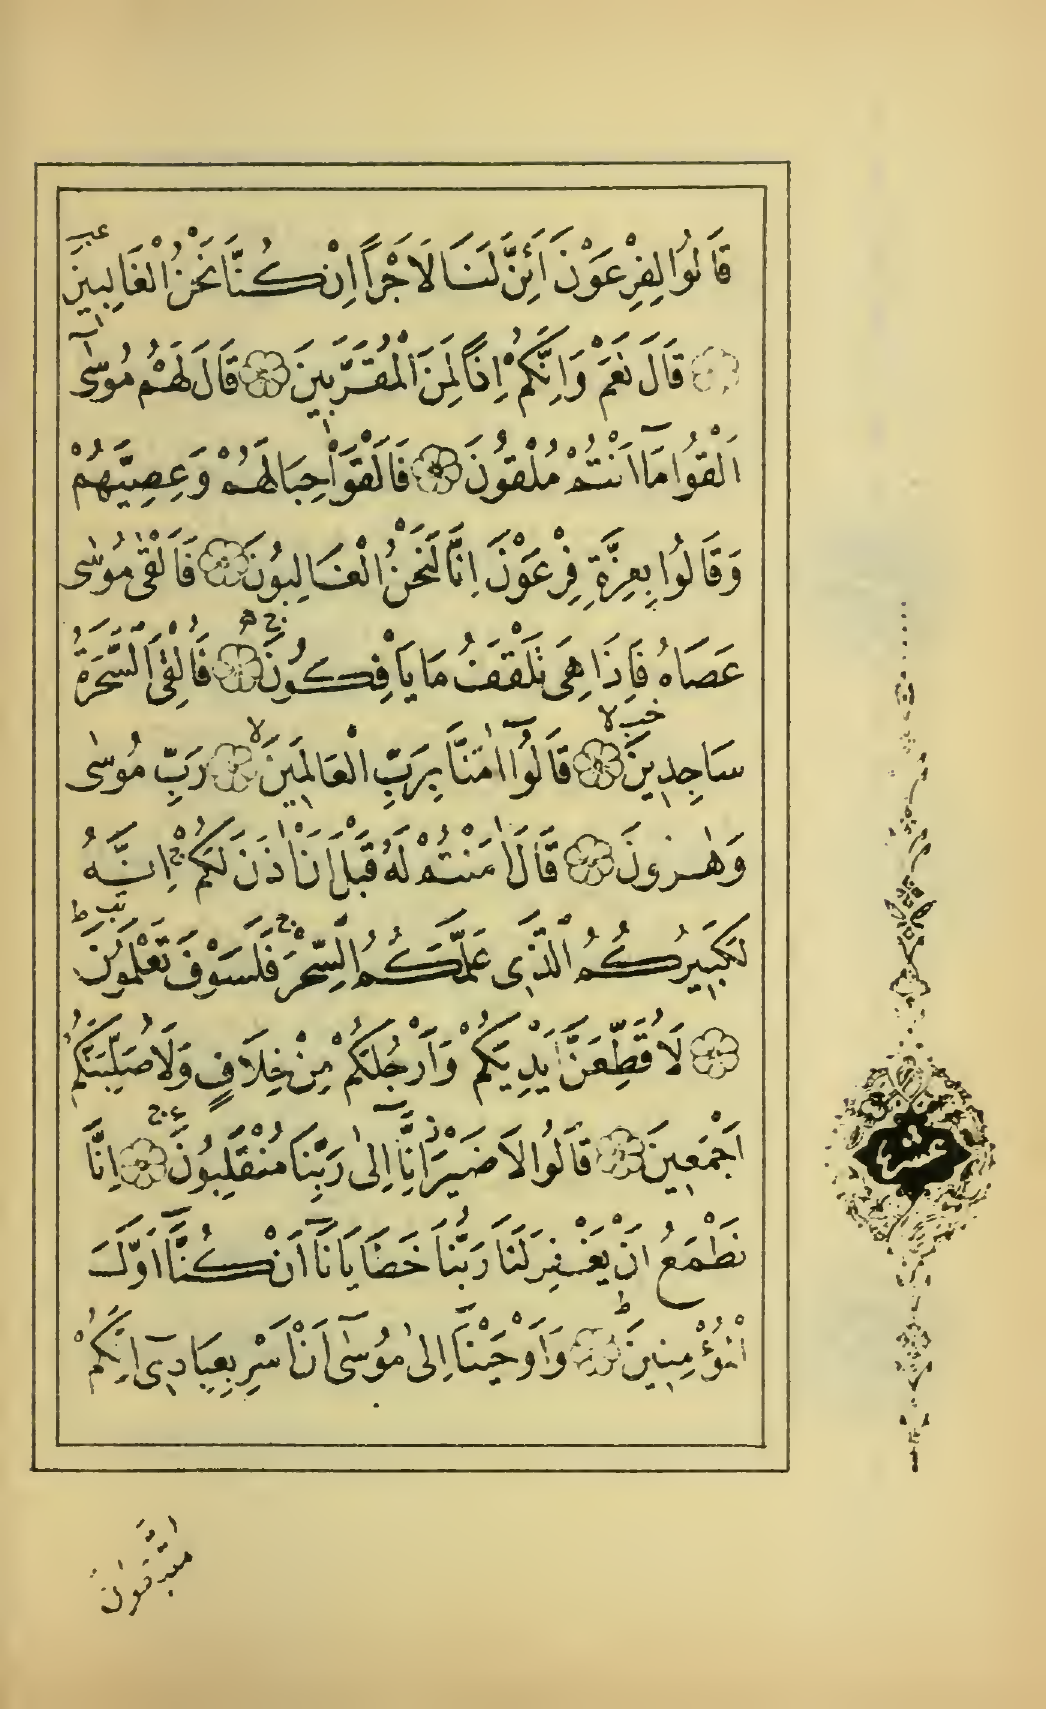 قَالُوا لِفِرْعَوْنَ اَئِنَّ لَنَا لَاَجْرًا اِنْ كُنَّا نَحْنُ الْغَالِبِينَ
قَالَ نَعَمْ وَاِنَّكُمْ اِذًا لَمِنَ الْمُقَرَّبِينَ قَالَ لَهُمْ مُوسٰٓى
اَلْقُوا مَٓا اَنْتُمْ مُلْقُونَ فَاَلْقَوْا حِبَالَهُمْ وَعِصِيَّهُمْ
وَقَالُوا بِعِزَّةِ فِرْعَوْنَ اِنَّا لَنَحْنُ الْغَالِبُونَ فَاَلْقٰى مُوسٰى
عَصَاهُ فَاِذَا هِىَ تَلْقَفُ مَا يَاْفِكُونَ فَاُلْقِىَ السَّحَرَةُ
سَاجِدِينَ قَالُوٓا اٰمَنَّا بِرَبِّ الْعَالَمِينَ رَبِّ مُوسٰى
وَهٰرُونَ قَالَ اٰمَنْتُمْ لَهُ قَبْلَ اَنْ اٰذَنَ لَكُمْ اِنَّهُ
لَكَبِيرُكُمُ الَّذِى عَلَّمَكُمُ السِّحْرَ فَلَسَوْفَ تَعْلَمُونَ
لَاُقَطِّعَنَّ اَيْدِيَكُمْ وَاَرْجُلَكُمْ مِنْ خِلَافٍ وَلَاُصَلِّبَنَّكُمْ
اَجْمَعِينَ قَالُوا لَا ضَيْرَ اِنَّٓا اِلٰى رَبِّنَا مُنْقَلِبُونَ اِنَّا
نَطْمَعُ اَنْ يَغْفِرَ لَنَا رَبُّنَا خَطَايَانَٓا اَنْ كُنَّٓا اَوَّلَ
الْمُؤْمِنِينَ وَاَوْحَيْنَٓا اِلٰى مُوسٰٓى اَنْ اَسْرِ بِعِبَادِٓى اِنَّكُمْ
عشر